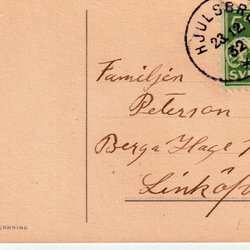 HJULSBR
23.12
32
5
SV
Familjen
Peterson
Berga Hage
Linköp
ERKNING